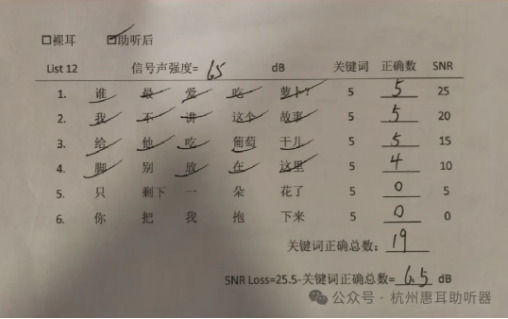 □裸耳 ☑助听后
List 12 信号声强度= 65 dB 关键词 正确数 SNR
1. 谁 最 爱 吃 萝卜? 5 5 25
2. 我 不 讲 这个 故事 5 5 20
3. 给 他 吃 葡萄 干儿 5 5 15
4. 脚 别 放 在 这里 5 4 10
5. 只 剩下 一 朵 花了 5 0 5
6. 你 把 我 抱 下来 5 0 0
关键词正确总数: 19
SNR Loss=25.5-关键词正确总数= 6.5 dB
公众号·杭州惠耳助听器